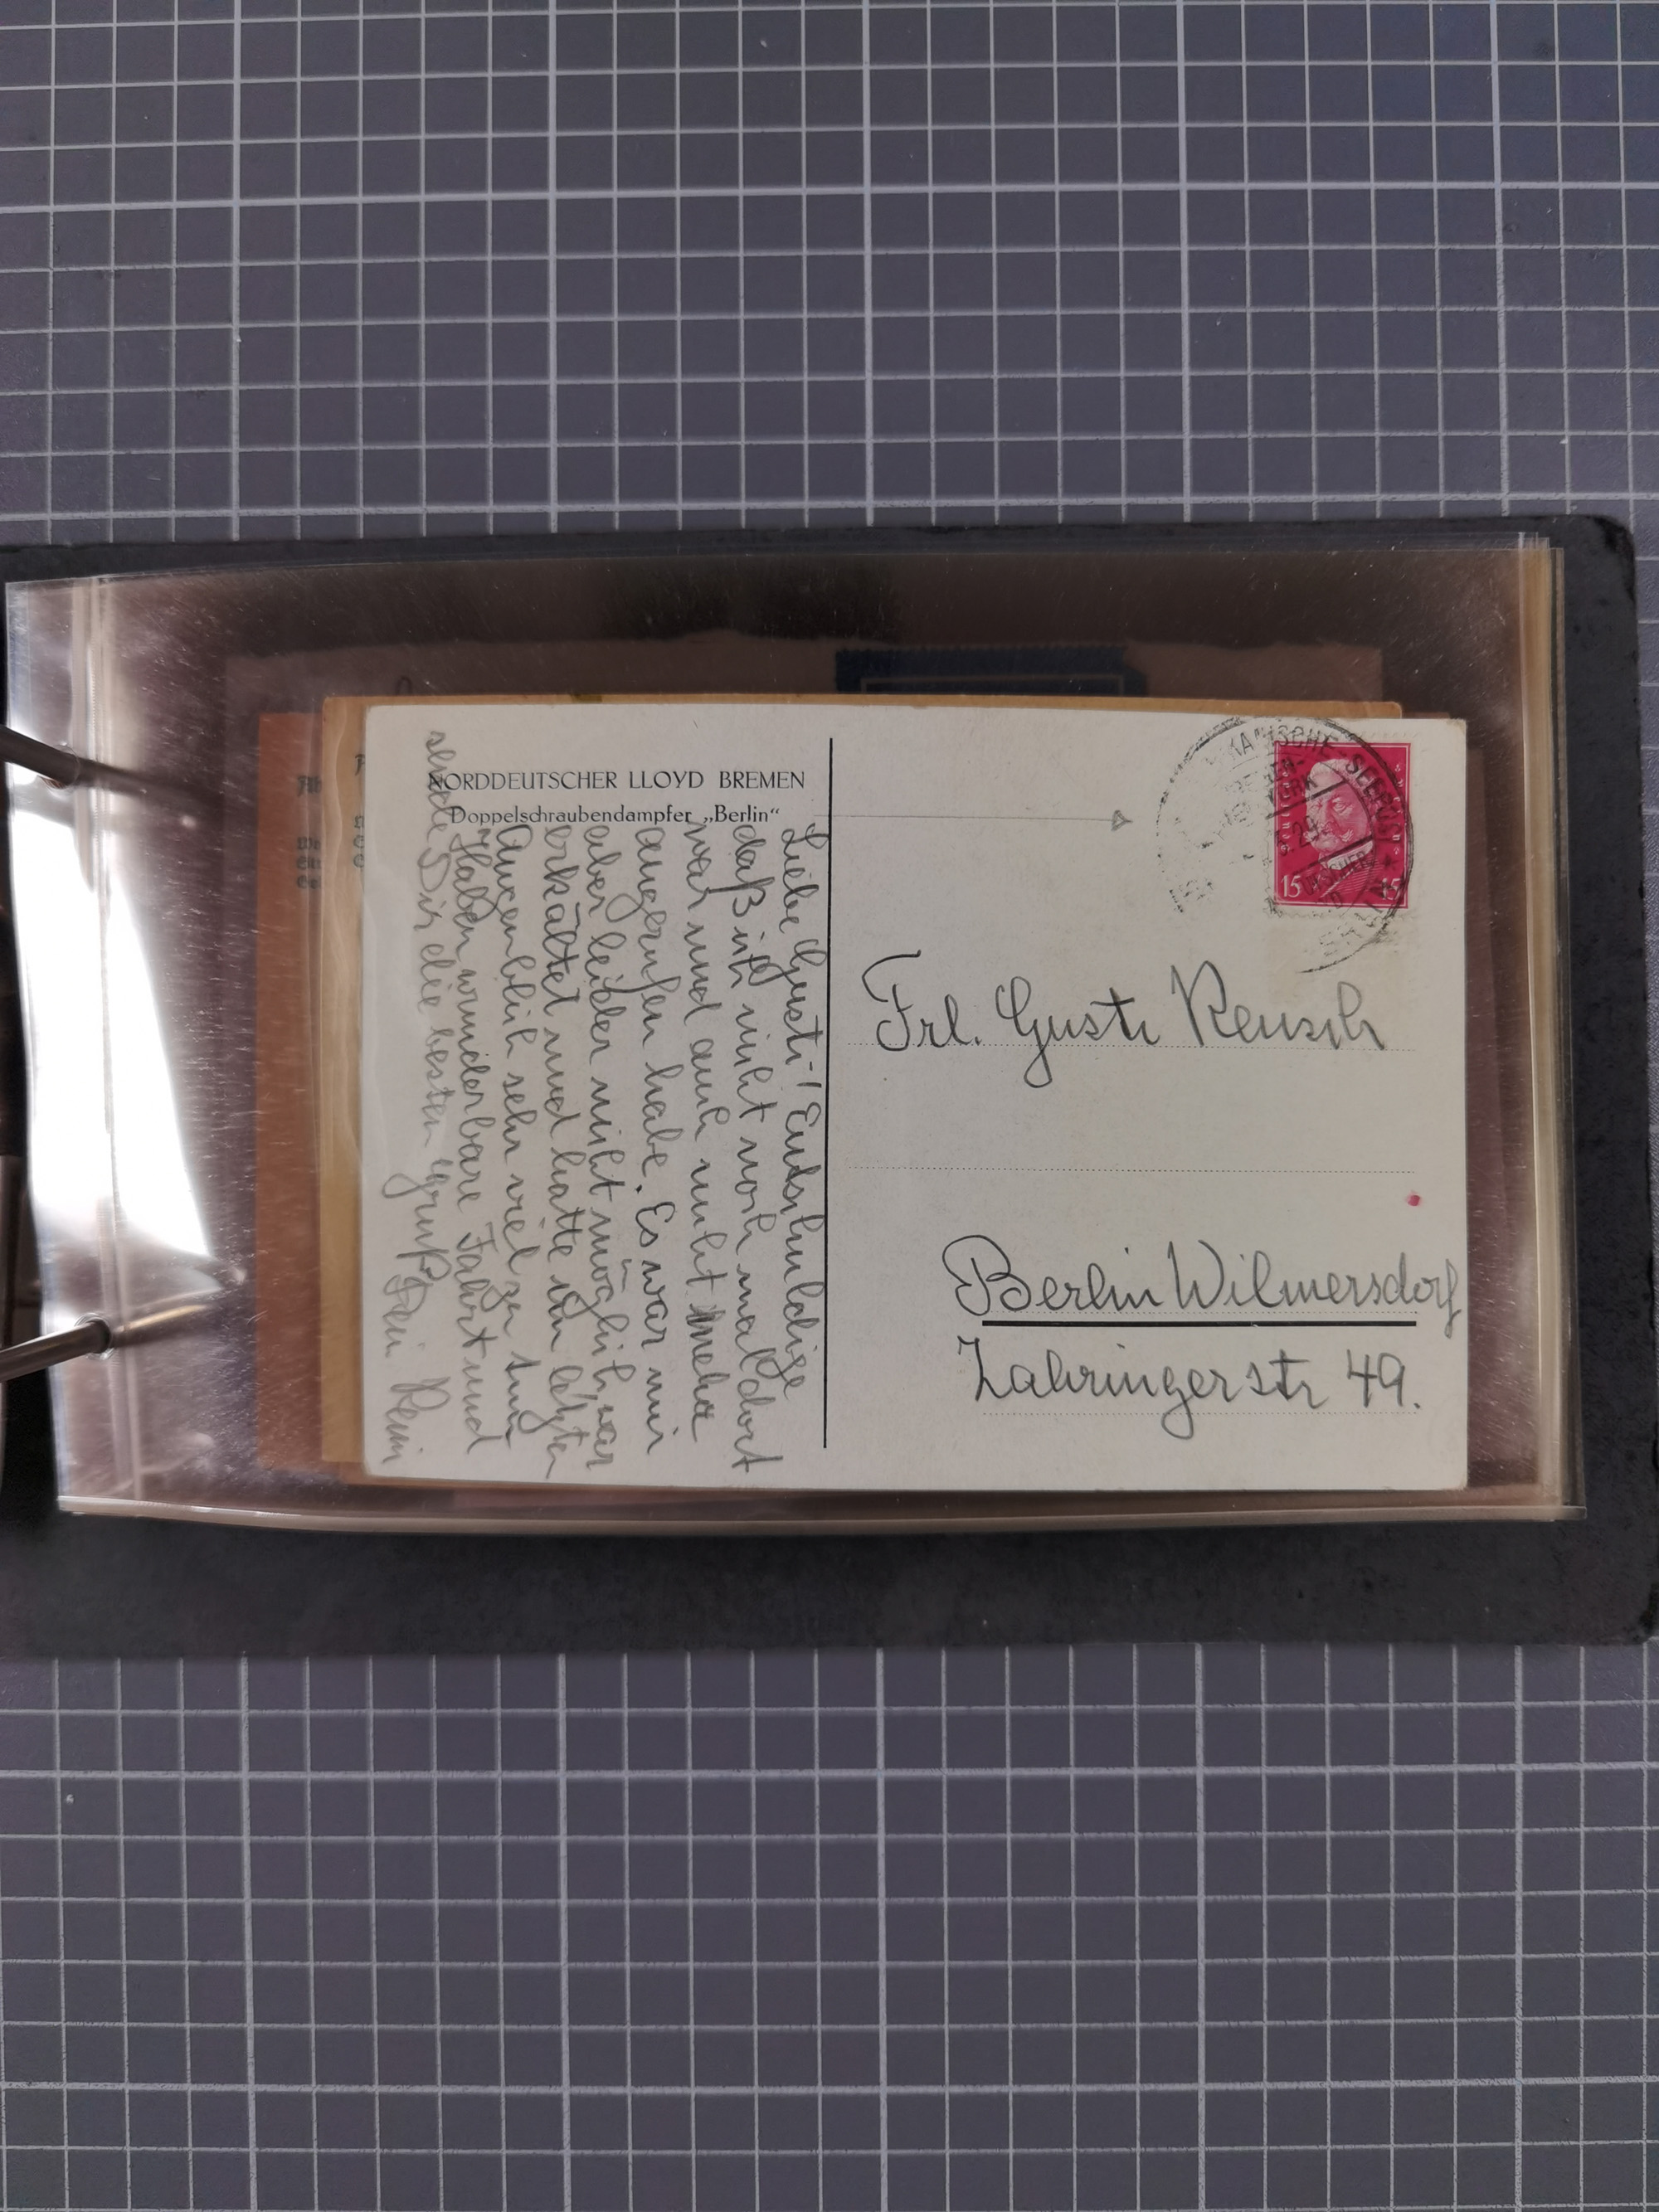 NORDDEUTSCHER LLOYD BREMEN
Doppelschraubendampfer „Berlin“
Liebe Gusti! Entschuldige
daß ich nicht noch mal dort
war und auch nicht mehr
angerufen habe. Es war mir
aber leider nicht möglich, war
erkältet und hatte im letzten
Augenblick sehr viel zu tun
Haben wunderbare Fahrt und
sende Dir die besten Grüße
Dein
KANISCHE SEEPOST
29
15 15
Frl. Gusti Reusch
Berlin Wilmersdorf
Zahringerstr 49.